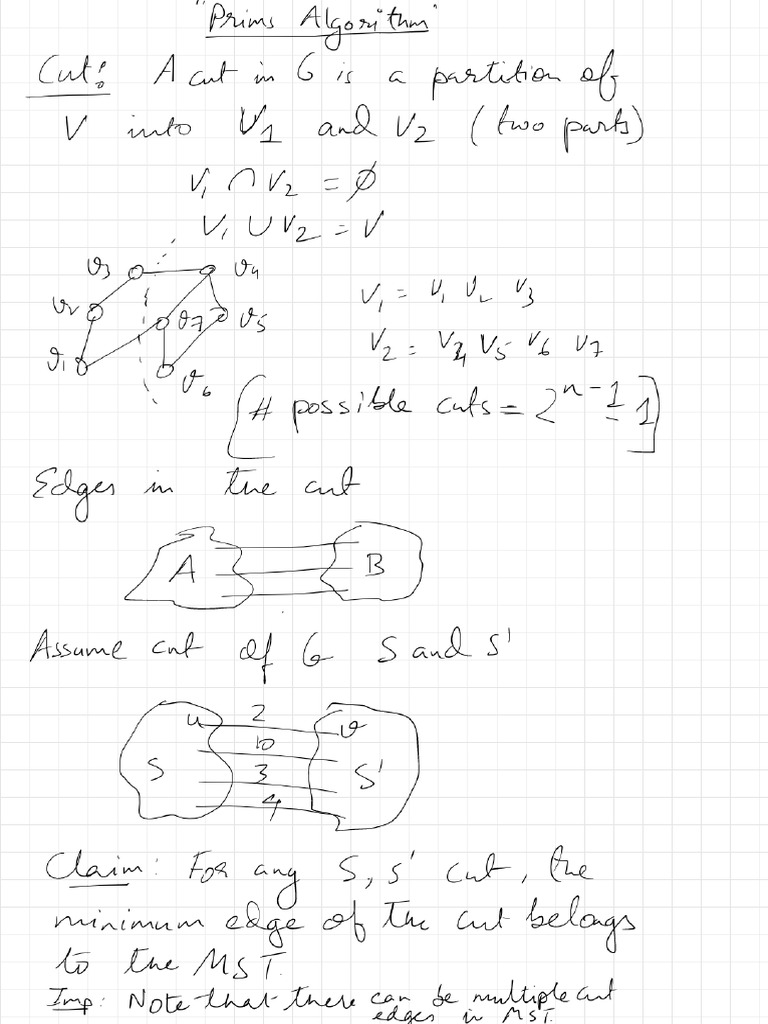 "Prims Algorithm"
Cut: A cut in G is a partition of
V into V1 and V2 (two parts)
V1 ∩ V2 = ∅
V1 ∪ V2 = V
v3 v4
v2 v7 v5
v1 v6
V1 = v1 v2 v3
V2 = v4 v5 v6 v7
[# possible cuts = 2^(n-1) - 1]
Edges in the cut
A B
Assume cut of G S and S'
u 2 v
10
S 3 S'
4
Claim: For any S, S' cut, the
minimum edge of the cut belongs
to the MST.
Imp: Note that there can be multiple cut
edges in MST.